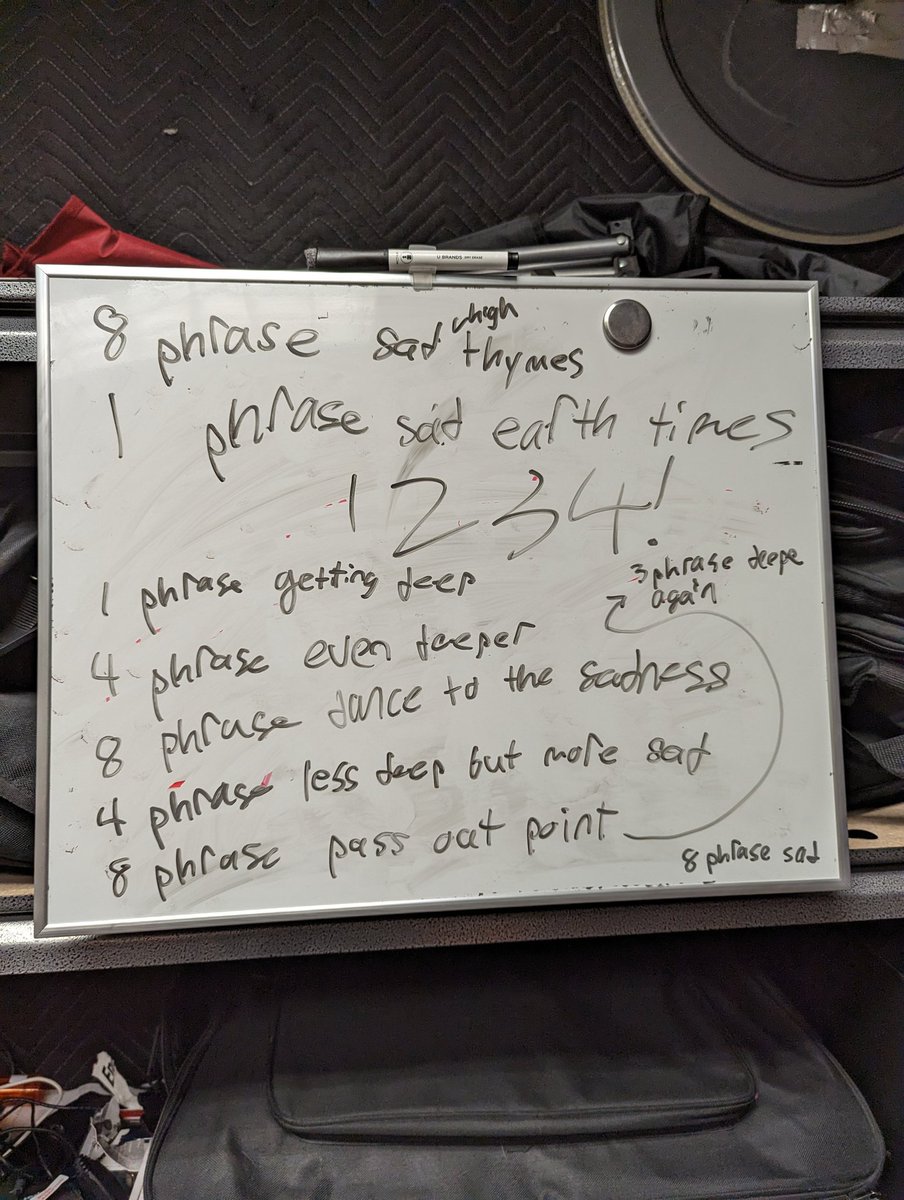 U BRANDS DRY ERASE
8 phrase sad high thymes
1 phrase sad earth times
1 2 3 4!
1 phrase getting deep
3 phrase deepe
again
4 phrase even deeper
8 phrase dance to the sadness
4 phrase less deep but more sad
8 phrase pass out point
8 phrase sad